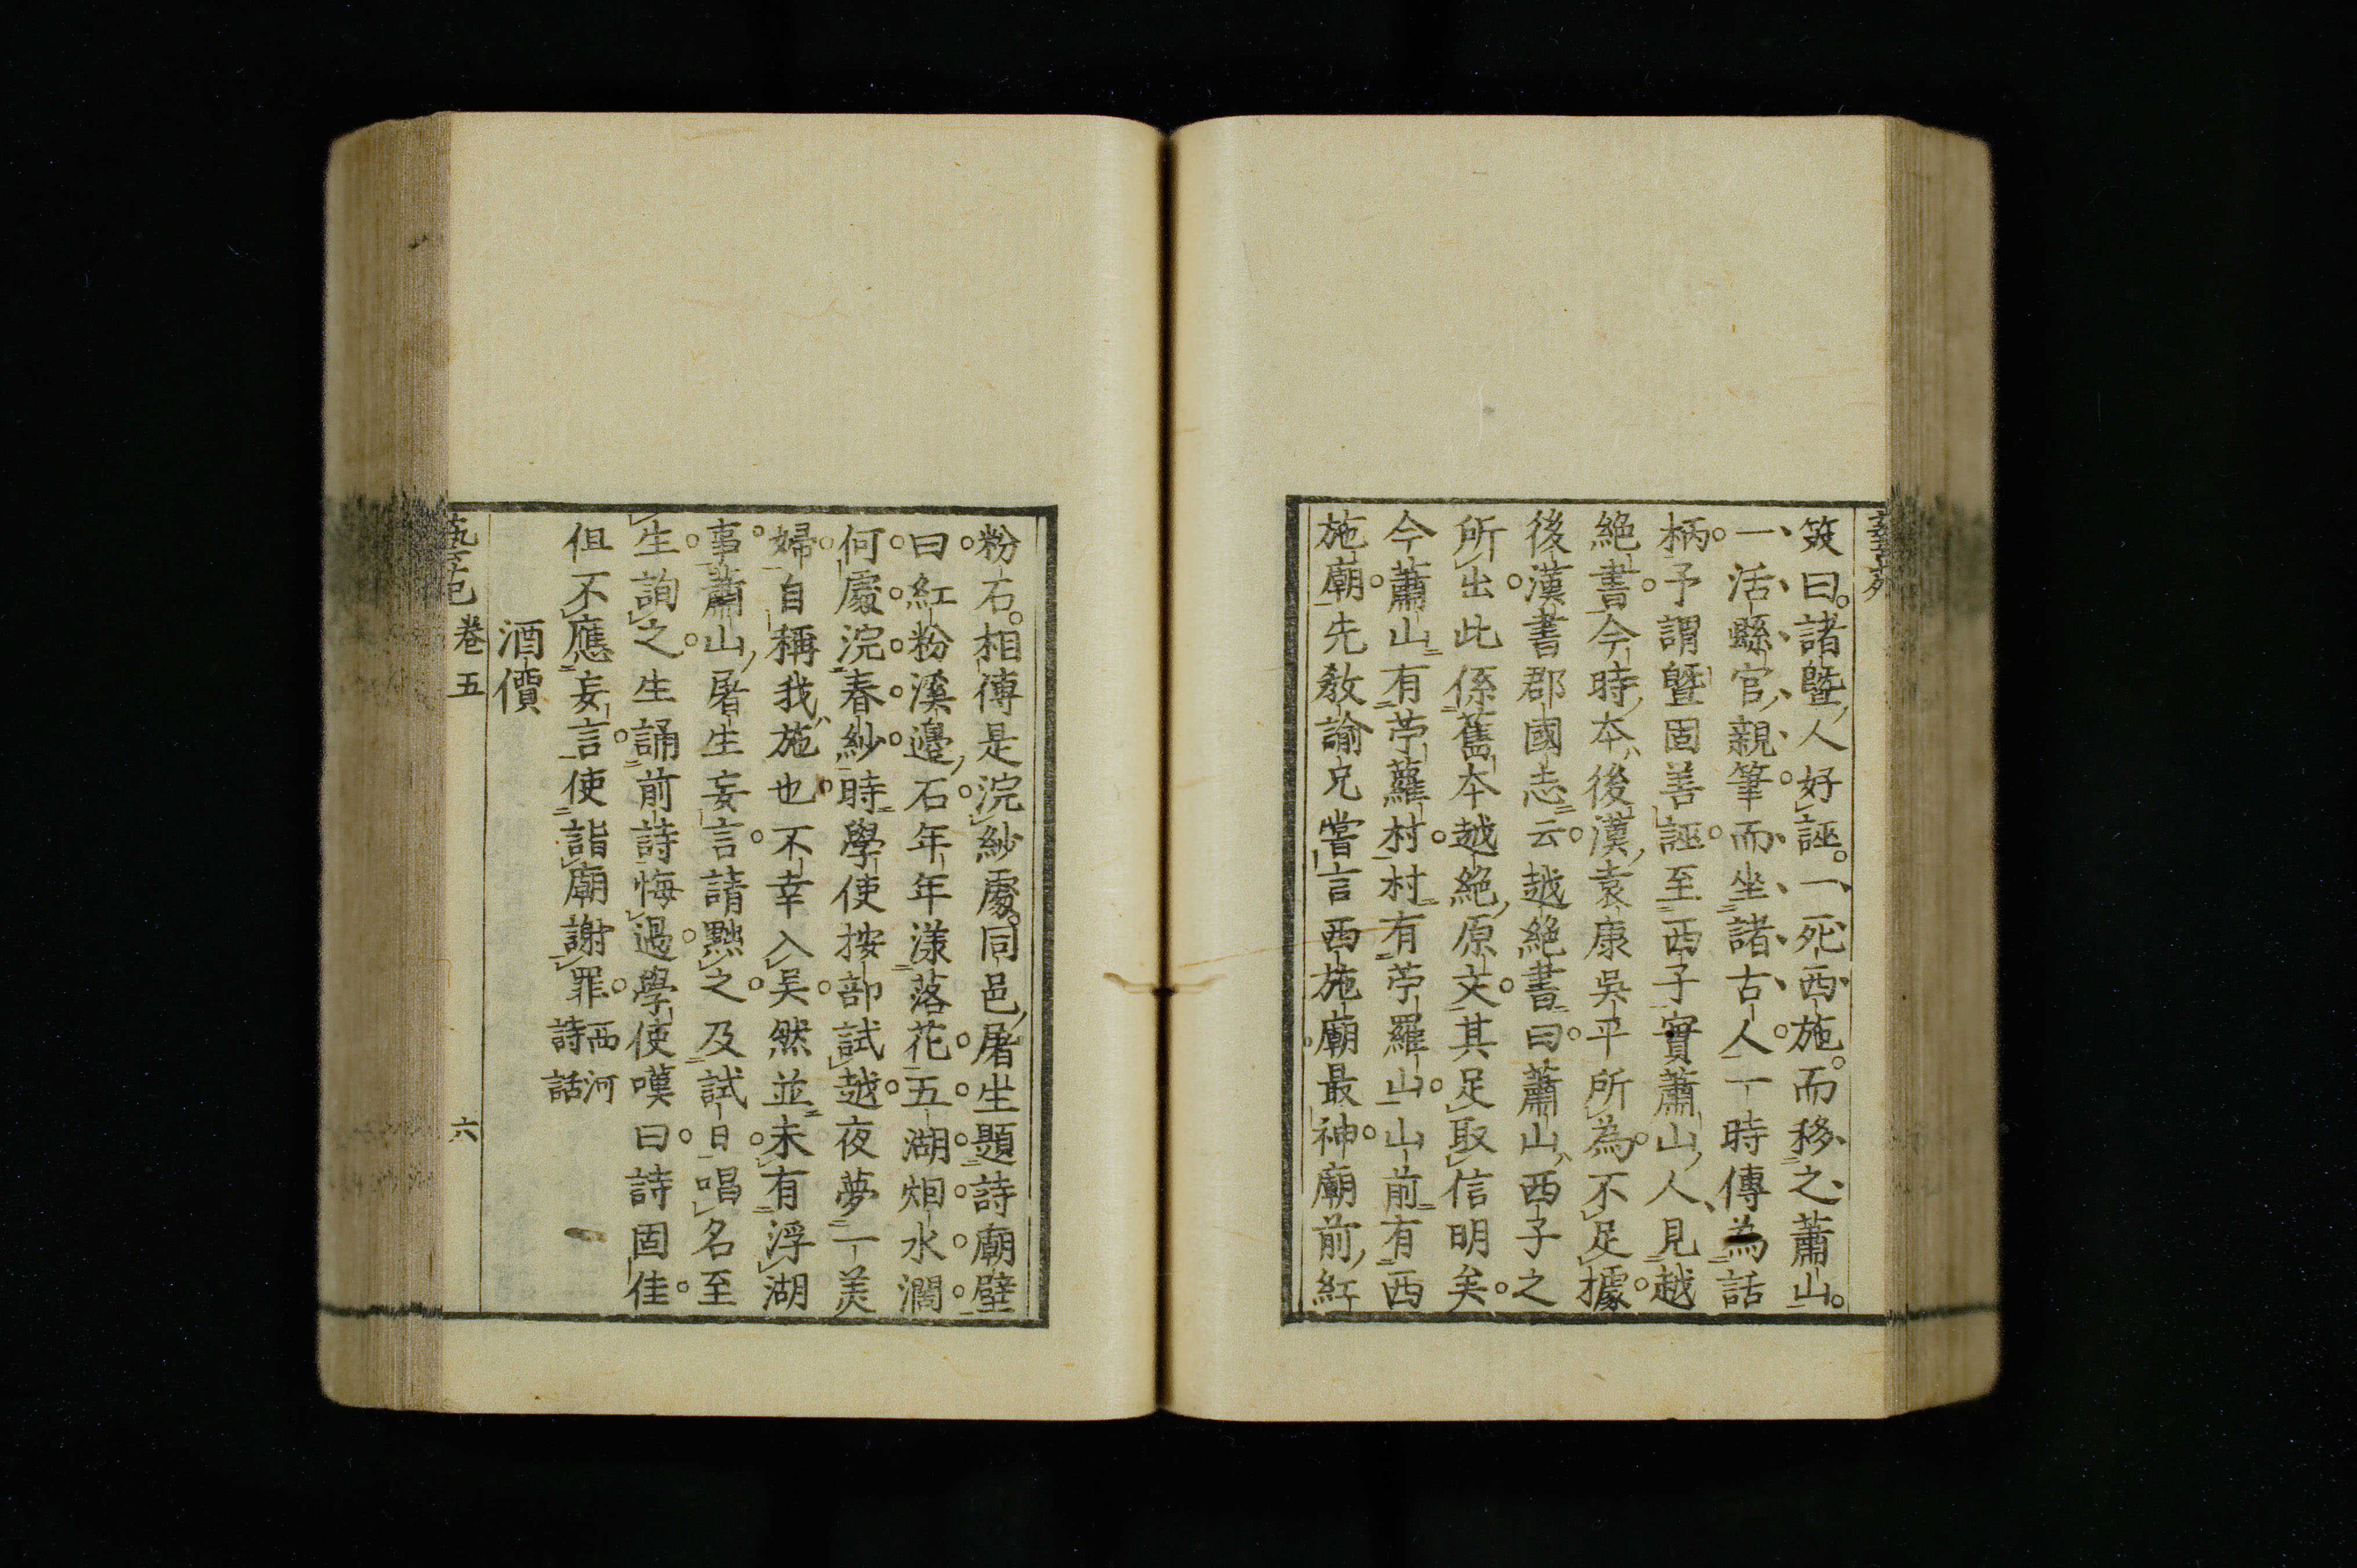 笑曰諸曁人好誣一死西施而移之蕭山
一活縣官親筆而坐諸古人一時傳為話
柄予謂曁固善誣至西子實蕭山人見越
絶書今時本後漢袁康吳平所為不足據
後漢書郡國志云越絶書曰蕭山西子之
所出此係舊本越絶原文其足取信明矣
今蕭山有苧蘿村村有苧羅山山前有西
施廟先教諭兄嘗言西施廟最神廟前紅
粉石相傳是浣紗處同邑屠生題詩廟壁
曰紅粉溪邊石年年漾落花五湖烟水濶
何處浣春紗時學使按部試越夜夢一美
婦自稱我施也不幸入吳然並未有浮湖
事蕭山屠生妄言請黜之及試日唱名至
生詢之生誦前詩悔過學使嘆曰詩固佳
但不應妄言使詣廟謝罪西河詩話
酒價
藝苑 卷五 六